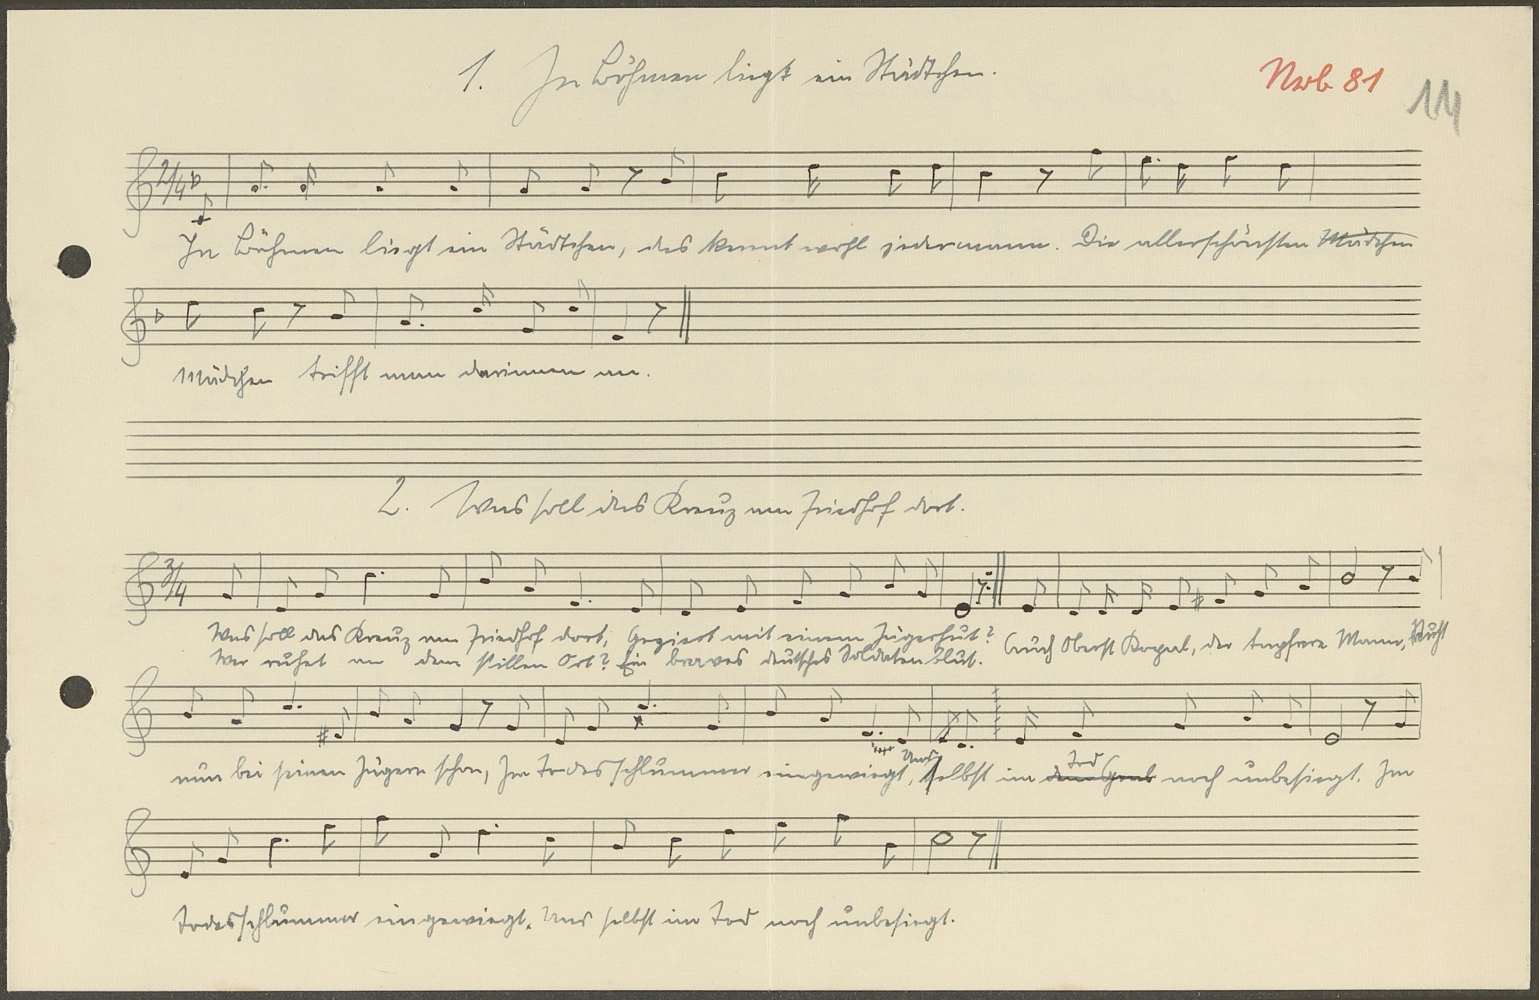 1. In Böhmen liegt ein Städtchen.
Nrb 81
14
2/4
In Böhmen liegt ein Städtchen, das kennt wohl jedermann. Die allerschönsten Mädchen
Mädchen trifft man darinnen an.
2. Was soll das Kreuz am Friedhof dort.
3/4
Was soll das Kreuz am Friedhof dort, Geziert mit einem Jägerhut? Auch Oberst Kopal, der tapfere Mann, Ruht
Wer ruhet an dem stillen Ort? Ein braves deutsches Soldatenblut.
nun bei seinen Jägern schon, Im Todesschlummer eingewiegt, Uns selbst im Tod noch unbesiegt. Im
Todesschlummer eingewiegt, Uns selbst im Tod noch unbesiegt.